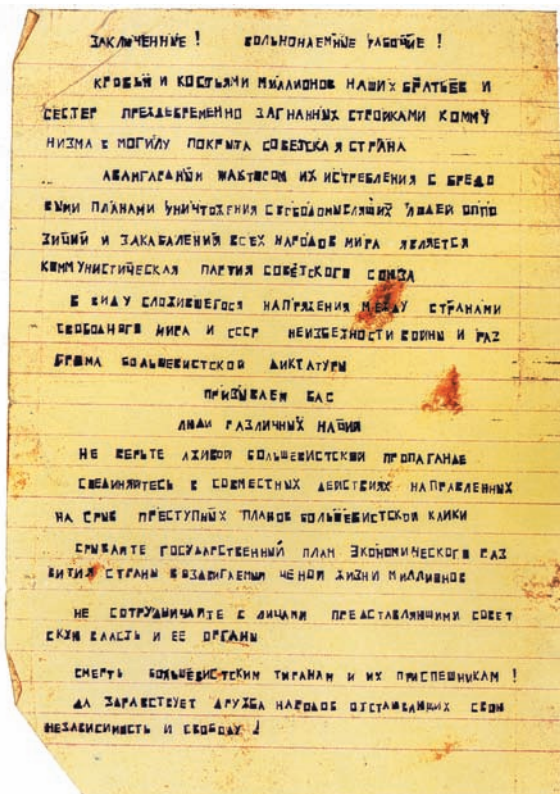 ЗАКЛЮЧЕННЫЕ ! ВОЛЬНОНАЕМНЫЕ РАБОЧИЕ !
КРОВЬЮ И КОСТЬЯМИ МИЛЛИОНОВ НАШИХ БРАТЬЕВ И
СЕСТЕР ПРЕЖДЕВРЕМЕННО ЗАГНАННЫХ СТРОЙКАМИ КОММУ
НИЗМА В МОГИЛУ ПОКРЫТА СОВЕТСКАЯ СТРАНА
АВАНГАРДНЫМ ФАКТОРОМ ИХ ИСТРЕБЛЕНИЯ С БРЕДО
ВЫМИ ПЛАНАМИ УНИЧТОЖЕНИЯ СВОБОДОМЫСЛЯЩИХ ЛЮДЕЙ ОППО
ЗИЦИЙ И ЗАКАБАЛЕНИЯ ВСЕХ НАРОДОВ МИРА ЯВЛЯЕТСЯ
КОММУНИСТИЧЕСКАЯ ПАРТИЯ СОВЕТСКОГО СОЮЗА
В ВИДУ СЛОЖИВШЕГОСЯ НАПРЯЖЕНИЯ МЕЖДУ СТРАНАМИ
СВОБОДНОГО МИРА И СССР НЕИЗБЕЖНОСТИ ВОЙНЫ И РАЗ
ГРОМА БОЛЬШЕВИСТСКОЙ ДИКТАТУРЫ
ПРИЗЫВАЕМ ВАС
ЛЮДИ РАЗЛИЧНЫХ НАЦИЙ
НЕ ВЕРЬТЕ ЛЖИВОЙ БОЛЬШЕВИСТСКОЙ ПРОПАГАНДЕ
СОЕДИНЯЙТЕСЬ В СОВМЕСТНЫХ ДЕЙСТВИЯХ НАПРАВЛЕННЫХ
НА СРЫВ ПРЕСТУПНЫХ ПЛАНОВ БОЛЬШЕВИСТСКОЙ КЛИКИ
СРЫВАЙТЕ ГОСУДАРСТВЕННЫЙ ПЛАН ЭКОНОМИЧЕСКОГО РАЗ
ВИТИЯ СТРАНЫ ВОЗДВИГАЕМЫЙ ЦЕНОЙ ЖИЗНИ МИЛЛИОНОВ
НЕ СОТРУДНИЧАЙТЕ С ЛИЦАМИ ПРЕДСТАВЛЯЮЩИМИ СОВЕТ
СКУЮ ВЛАСТЬ И ЕЕ ОРГАНЫ
СМЕРТЬ БОЛЬШЕВИСТСКИМ ТИРАНАМ И ИХ ПРИСПЕШНИКАМ !
ДА ЗДРАВСТВУЕТ ДРУЖБА НАРОДОВ ОТСТАИВАЮЩИХ СВОЮ
НЕЗАВИСИМОСТЬ И СВОБОДУ !